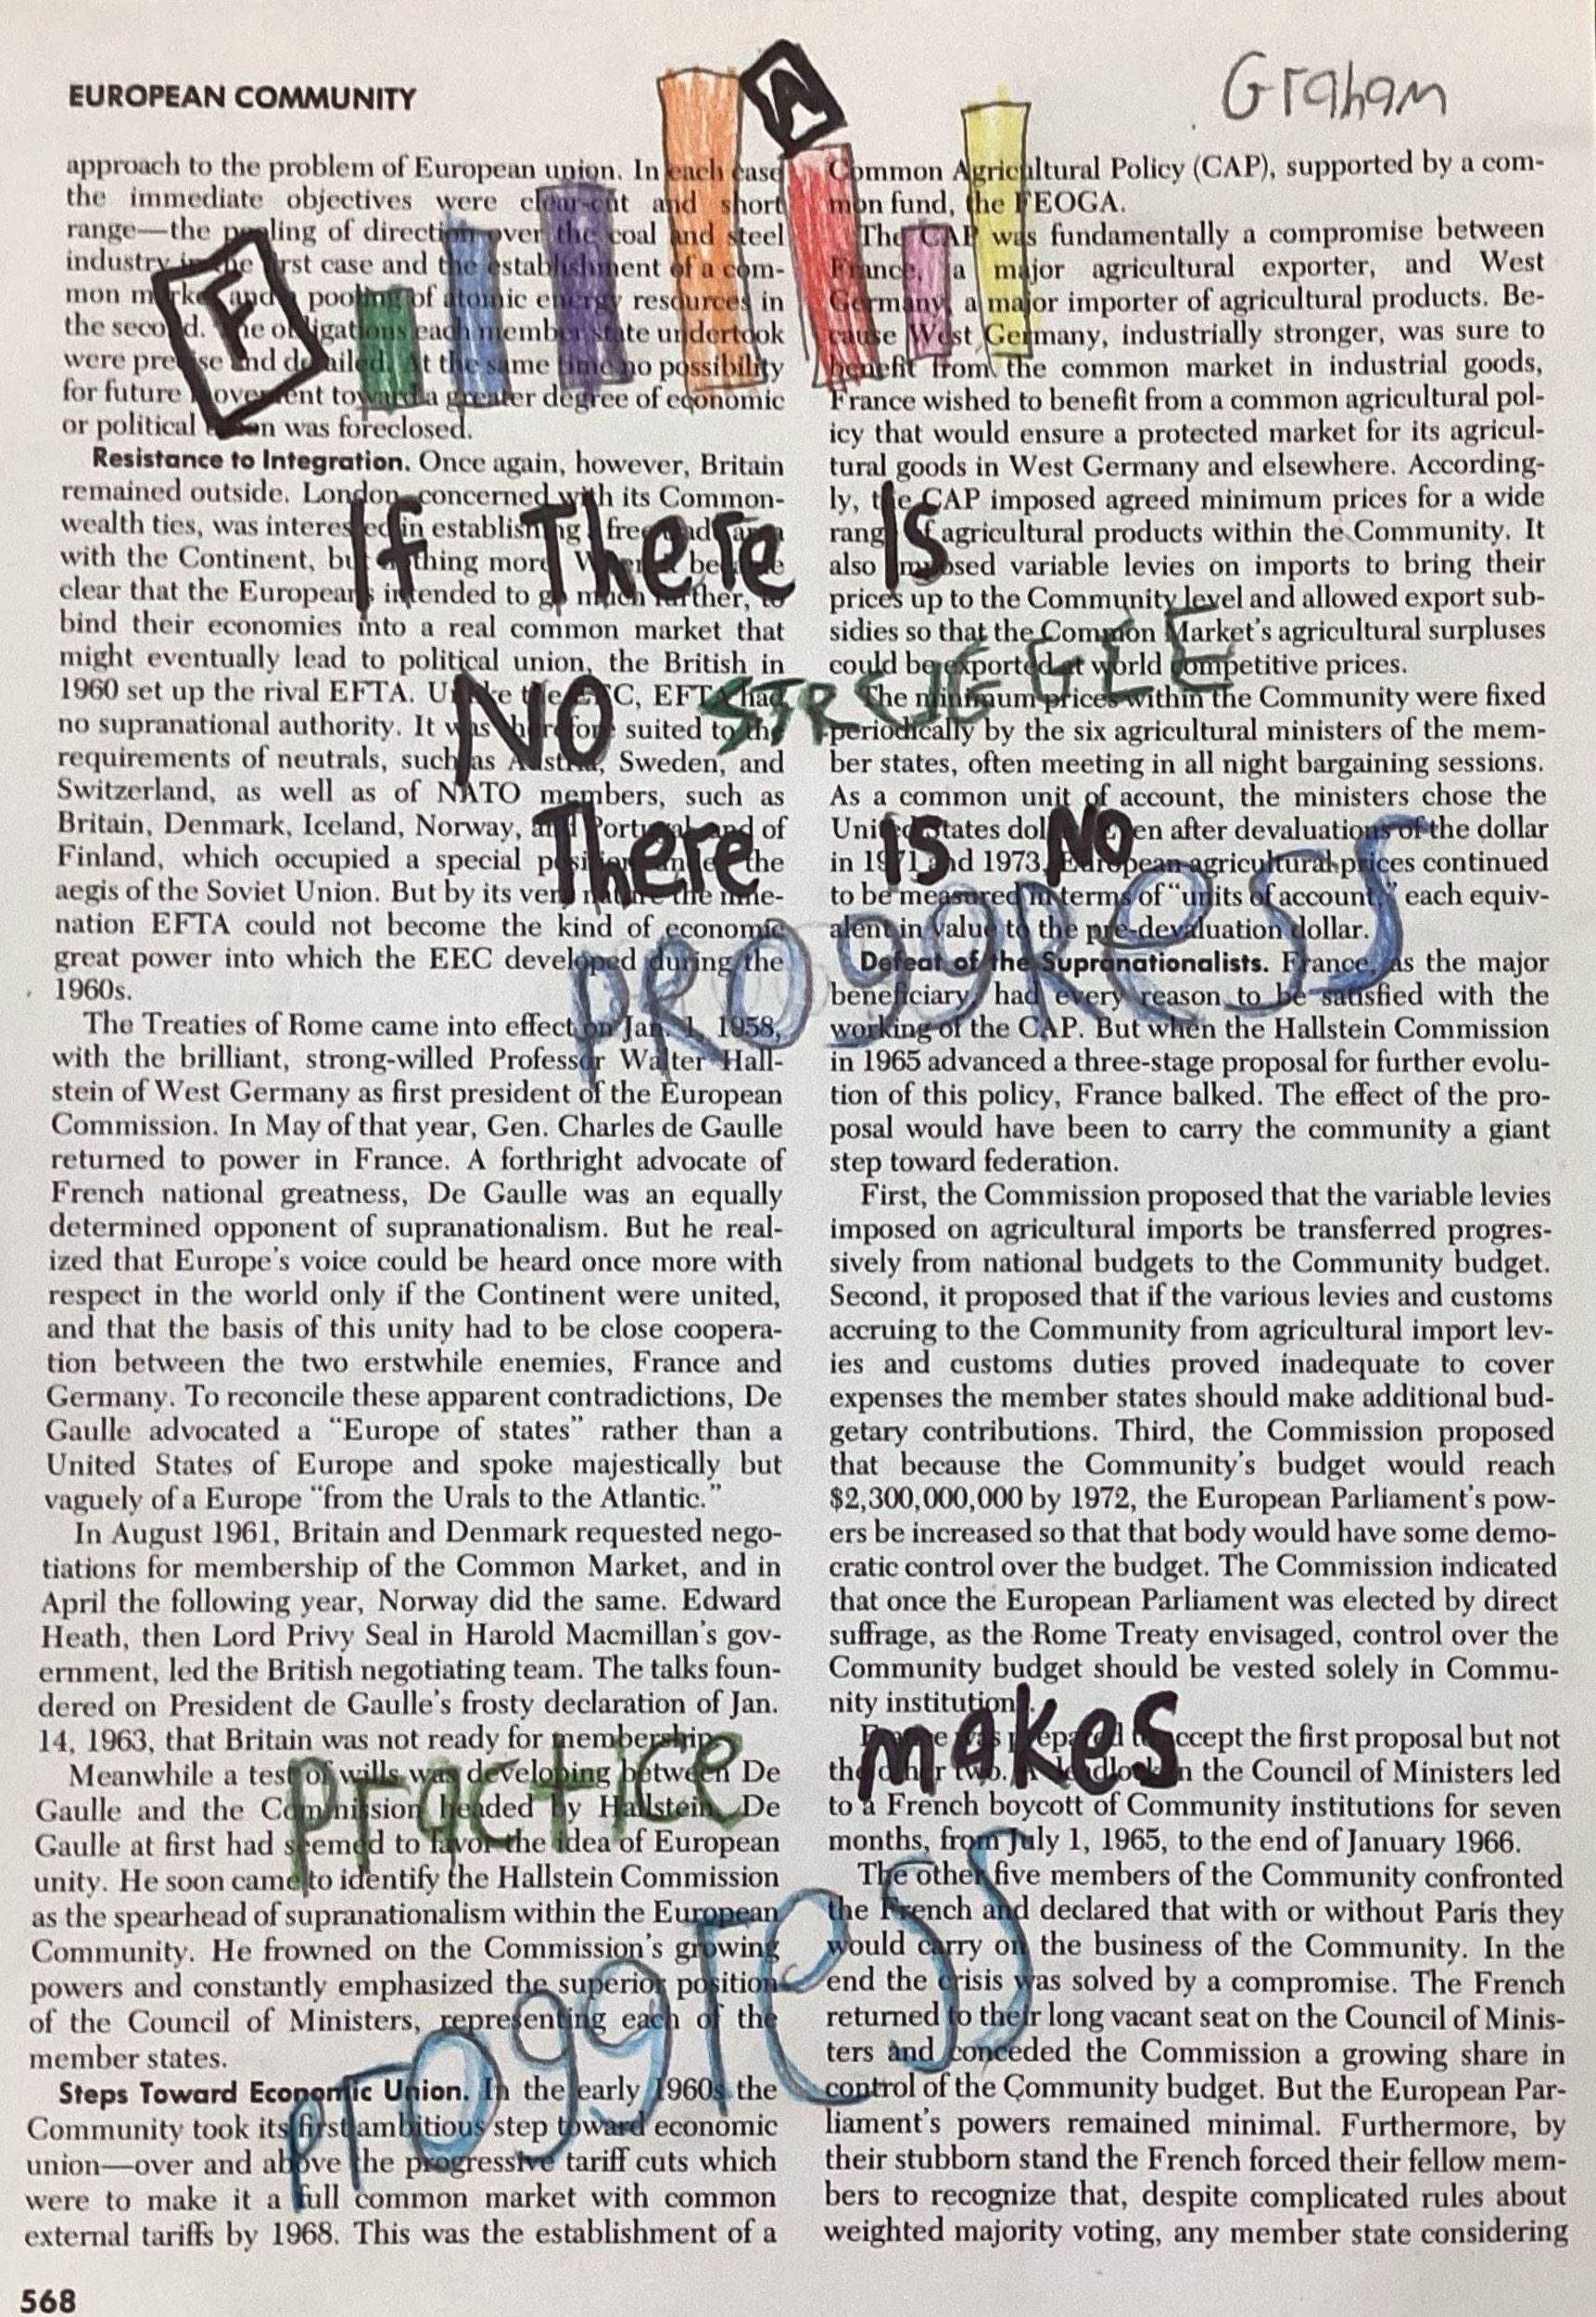 EUROPEAN COMMUNITY
Graham
F
A
approach to the problem of European union. In each case
the immediate objectives were clear-cut and short
range—the pooling of direction over the coal and steel
industry in the first case and the establishment of a com-
mon market and a pooling of atomic energy resources in
the second. The obligations each member state undertook
were precise and detailed. At the same time no possibility
for future movement toward a greater degree of economic
or political union was foreclosed.
Resistance to Integration. Once again, however, Britain
remained outside. London, concerned with its Common-
wealth ties, was interested in establishing a free trade area
with the Continent, but nothing more. When it became
clear that the Europeans intended to go much further, to
bind their economies into a real common market that
might eventually lead to political union, the British in
1960 set up the rival EFTA. Unlike the EEC, EFTA had
no supranational authority. It was therefore suited to the
requirements of neutrals, such as Austria, Sweden, and
Switzerland, as well as of NATO members, such as
Britain, Denmark, Iceland, Norway, and Portugal, and of
Finland, which occupied a special position under the
aegis of the Soviet Union. But by its very nature the nine-
nation EFTA could not become the kind of economic
great power into which the EEC developed during the
1960s.
The Treaties of Rome came into effect on Jan. 1, 1958,
with the brilliant, strong-willed Professor Walter Hall-
stein of West Germany as first president of the European
Commission. In May of that year, Gen. Charles de Gaulle
returned to power in France. A forthright advocate of
French national greatness, De Gaulle was an equally
determined opponent of supranationalism. But he real-
ized that Europe's voice could be heard once more with
respect in the world only if the Continent were united,
and that the basis of this unity had to be close coopera-
tion between the two erstwhile enemies, France and
Germany. To reconcile these apparent contradictions, De
Gaulle advocated a "Europe of states" rather than a
United States of Europe and spoke majestically but
vaguely of a Europe "from the Urals to the Atlantic."
In August 1961, Britain and Denmark requested nego-
tiations for membership of the Common Market, and in
April the following year, Norway did the same. Edward
Heath, then Lord Privy Seal in Harold Macmillan's gov-
ernment, led the British negotiating team. The talks foun-
dered on President de Gaulle's frosty declaration of Jan.
14, 1963, that Britain was not ready for membership.
Meanwhile a test of wills was developing between De
Gaulle and the Commission headed by Hallstein. De
Gaulle at first had seemed to favor the idea of European
unity. He soon came to identify the Hallstein Commission
as the spearhead of supranationalism within the European
Community. He frowned on the Commission's growing
powers and constantly emphasized the superior position
of the Council of Ministers, representing each of the
member states.
Steps Toward Economic Union. In the early 1960s the
Community took its first ambitious step toward economic
union—over and above the progressive tariff cuts which
were to make it a full common market with common
external tariffs by 1968. This was the establishment of a
Common Agricultural Policy (CAP), supported by a com-
mon fund, the FEOGA.
The CAP was fundamentally a compromise between
France, a major agricultural exporter, and West
Germany, a major importer of agricultural products. Be-
cause West Germany, industrially stronger, was sure to
benefit from the common market in industrial goods,
France wished to benefit from a common agricultural pol-
icy that would ensure a protected market for its agricul-
tural goods in West Germany and elsewhere. According-
ly, the CAP imposed agreed minimum prices for a wide
range of agricultural products within the Community. It
also imposed variable levies on imports to bring their
prices up to the Community level and allowed export sub-
sidies so that the Common Market's agricultural surpluses
could be exported at world competitive prices.
The minimum prices within the Community were fixed
periodically by the six agricultural ministers of the mem-
ber states, often meeting in all night bargaining sessions.
As a common unit of account, the ministers chose the
United States dollar. Even after devaluations of the dollar
in 1971 and 1973, European agricultural prices continued
to be measured in terms of "units of account," each equiv-
alent in value to the pre-devaluation dollar.
Defeat of the Supranationalists. France, as the major
beneficiary, had every reason to be satisfied with the
working of the CAP. But when the Hallstein Commission
in 1965 advanced a three-stage proposal for further evolu-
tion of this policy, France balked. The effect of the pro-
posal would have been to carry the community a giant
step toward federation.
First, the Commission proposed that the variable levies
imposed on agricultural imports be transferred progres-
sively from national budgets to the Community budget.
Second, it proposed that if the various levies and customs
accruing to the Community from agricultural import lev-
ies and customs duties proved inadequate to cover
expenses the member states should make additional bud-
getary contributions. Third, the Commission proposed
that because the Community's budget would reach
$2,300,000,000 by 1972, the European Parliament's pow-
ers be increased so that that body would have some demo-
cratic control over the budget. The Commission indicated
that once the European Parliament was elected by direct
suffrage, as the Rome Treaty envisaged, control over the
Community budget should be vested solely in Commu-
nity institutions.
France was prepared to accept the first proposal but not
the other two. A deadlock in the Council of Ministers led
to a French boycott of Community institutions for seven
months, from July 1, 1965, to the end of January 1966.
The other five members of the Community confronted
the French and declared that with or without Paris they
would carry on the business of the Community. In the
end the crisis was solved by a compromise. The French
returned to their long vacant seat on the Council of Minis-
ters and conceded the Commission a growing share in
control of the Community budget. But the European Par-
liament's powers remained minimal. Furthermore, by
their stubborn stand the French forced their fellow mem-
bers to recognize that, despite complicated rules about
weighted majority voting, any member state considering
If There Is
NO STRUGGLE
There is No
PROggRess
practice makes
proggress
568